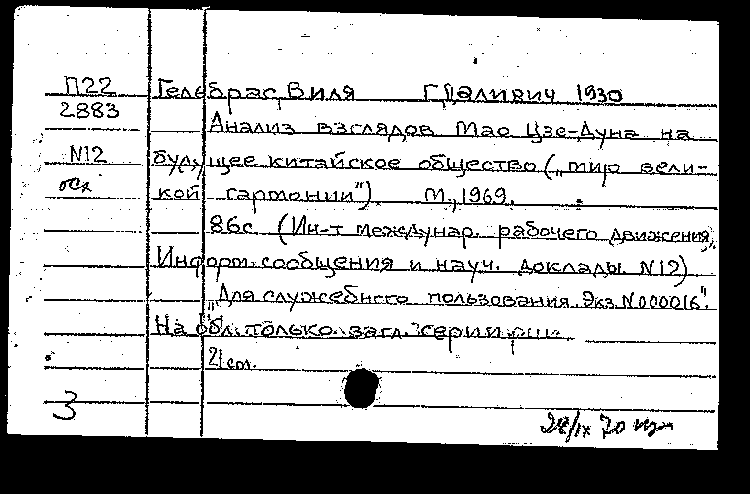 П22 Гельбрас, Виля Г,Далиевич 1930
2883
Анализ взглядов Мао Цзе-Дуна на
N12 будущее китайское общество („мир вели-
кой гармонии"). М., 1969.
86с. (Ин-т междунар. рабочего движения,
Информ. сообщения и науч. доклады. N12)
„Для служебного пользования. Экз. N000016".
На обл. только загл. серии
21см.
3
28/IX 70